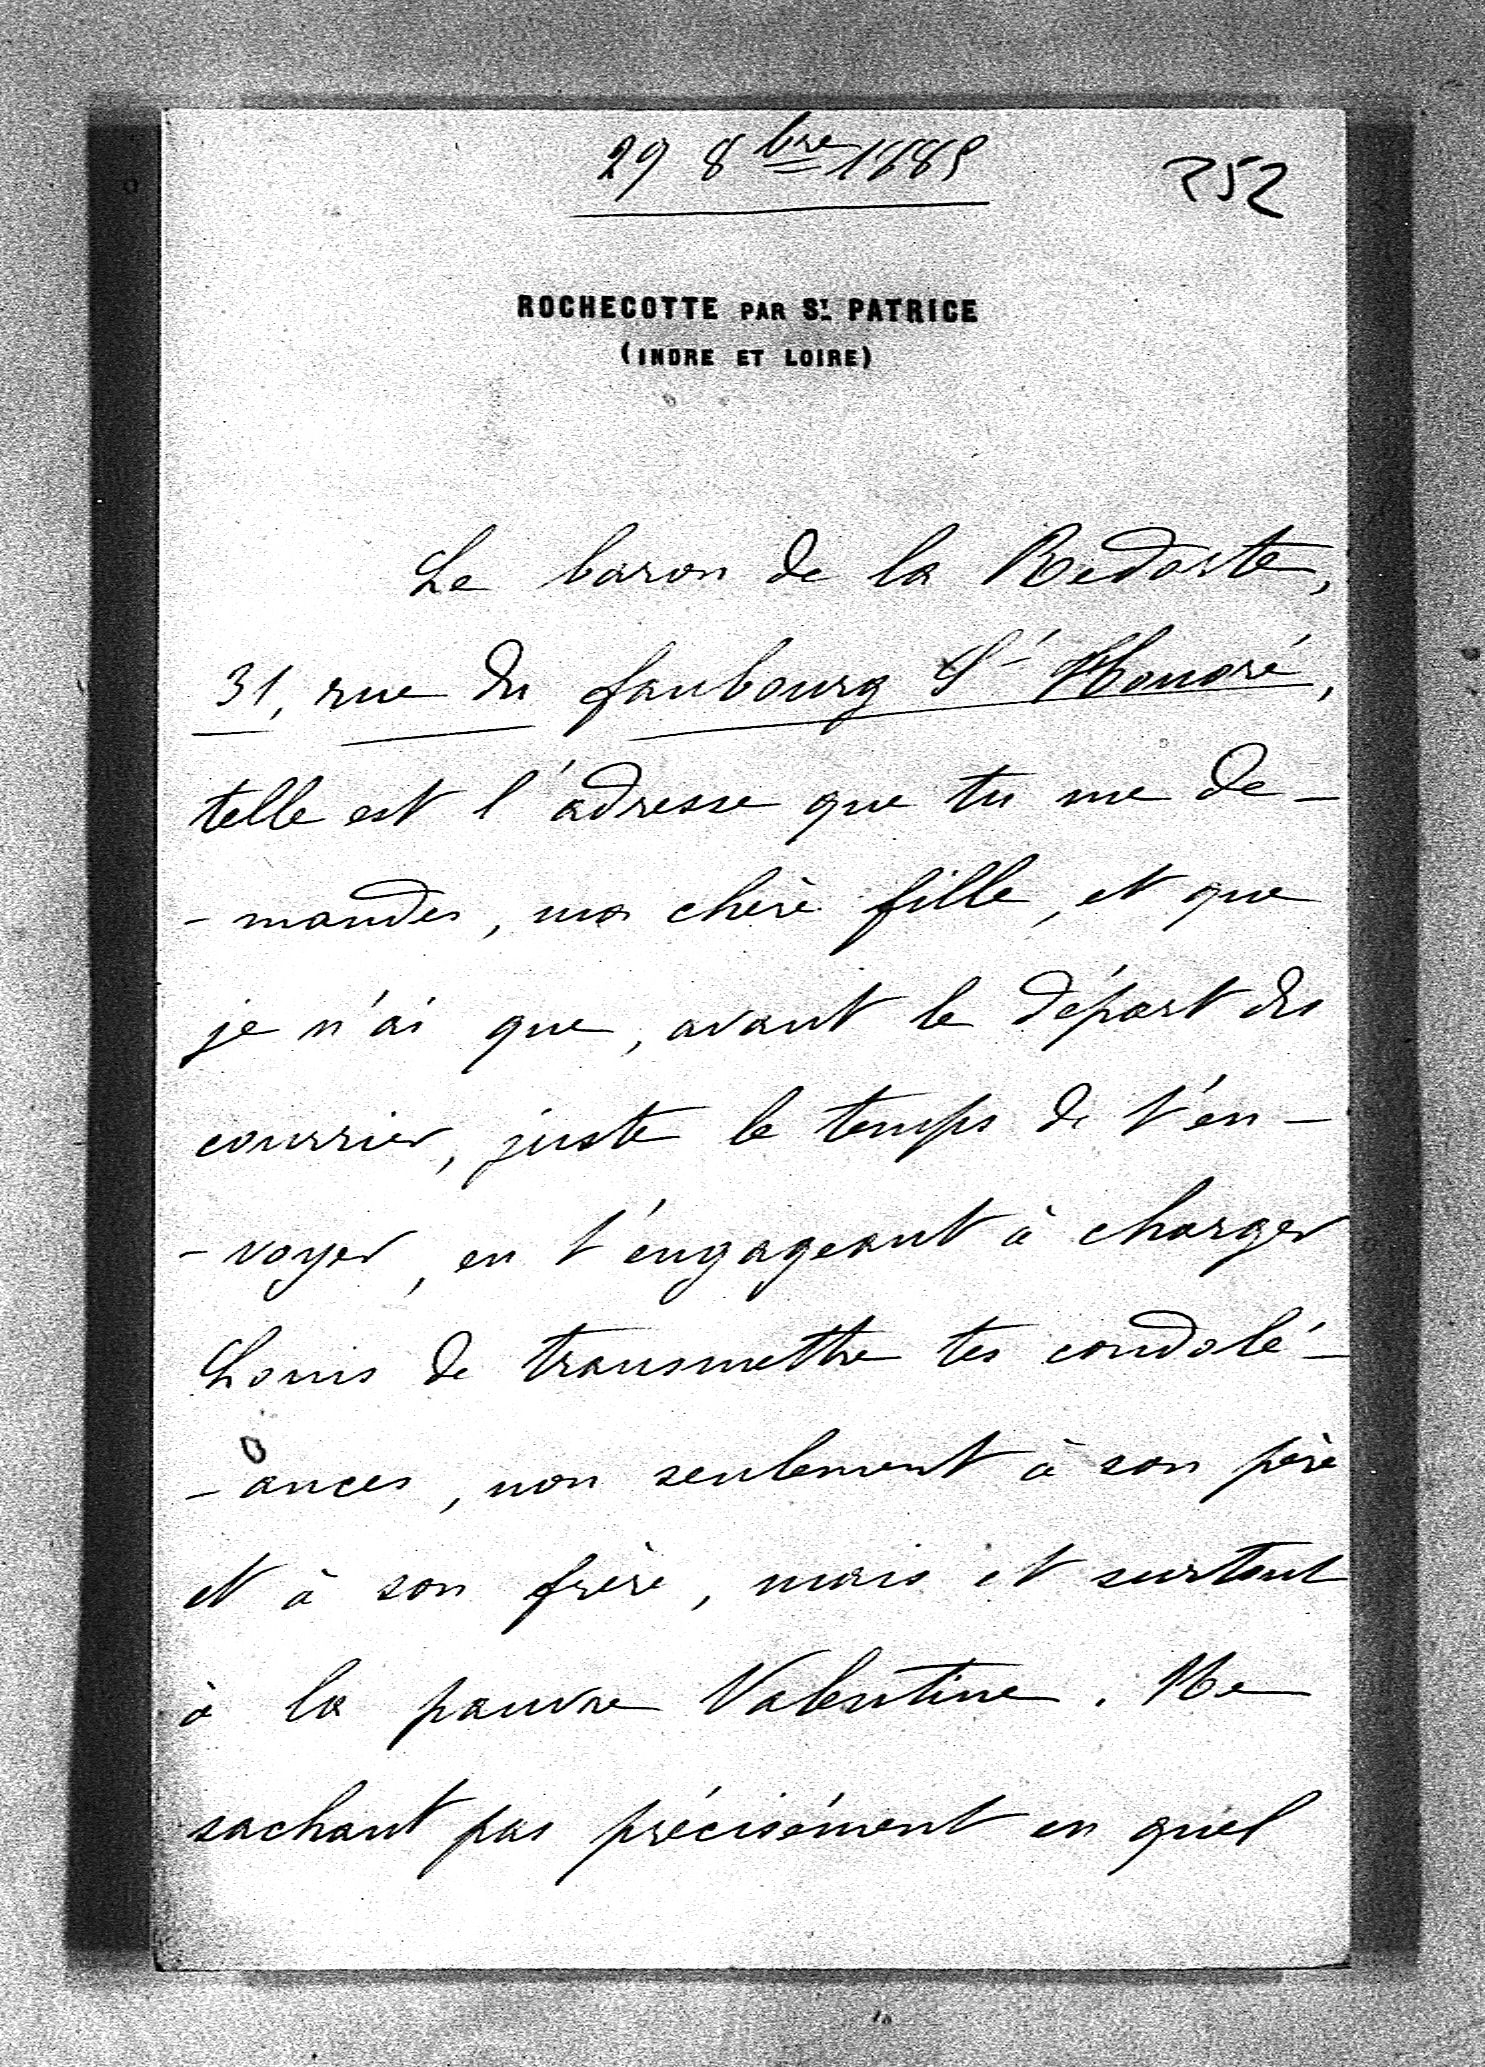 29 8bre 1885
252
ROCHECOTTE PAR ST PATRICE
(INDRE ET LOIRE)
Le baron de la Redorte,
31, rue du faubourg St Honoré,
telle est l'adresse que tu me de-
-mandes, ma chère fille, et que
je n'ai que, avant le départ du
courrier, juste le temps de t'en-
-voyer, en t'engageant à charger
Louis de transmettre tes condolé-
-ances, non seulement à son père
et à son frère, mais et surtout
à la pauvre Valentine. Ne
sachant pas précisément en quel